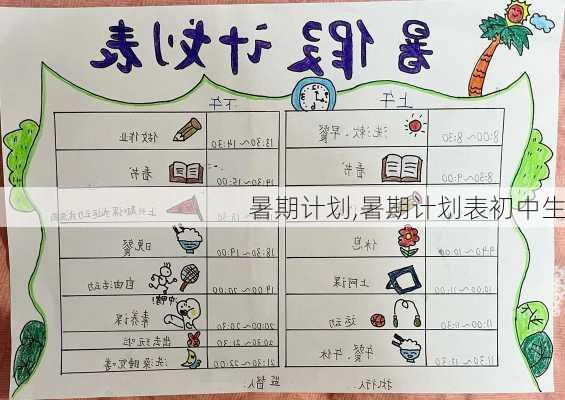 暑假计划表
上午 下午
8:00~8:30 洗漱、早餐 13:30~14:30 做作业
看书 看书
暑期计划,暑期计划表初中生
9:40~10:00 休息 18:30~19:00 晚餐
10:00~11:00 上网课 19:00~20:00 自由活动
11:00~11:30 运动 20:00~20:30 素养课
20:30~21:30 出去玩啦
11:30~12:30 午餐、午休 21:30~22:00 洗澡睡觉
执行人 监督人